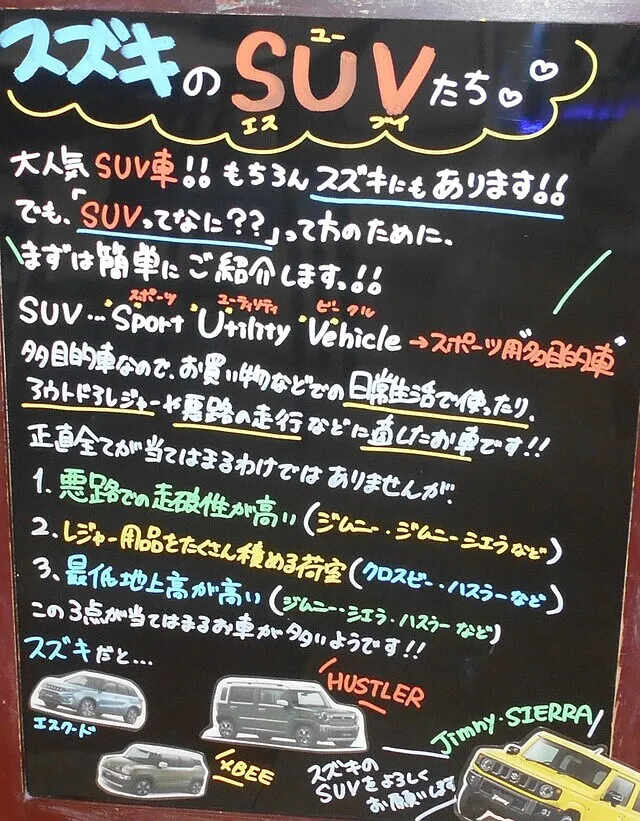 スズキの SUVたち♡♡
エス ユー ブイ
大人気 SUV車!! もちろん スズキにも あります!!
でも、「SUVってなに??」って方のために、
まずは簡単に ご紹介します。!!
スポーツ ユーティリティ ビークル
SUV…Sport Utility Vehicle →スポーツ用“多目的車”
多目的車なので、お買い物などでの日常生活で使ったり、
アウトドアレジャーや悪路の走行などに適したお車です!!
正直全てが当てはまるわけでは ありませんが、
1. 悪路での走破性が高い (ジムニー・ジムニーシエラなど)
2. レジャー用品をたくさん積める荷室 (クロスビー・ハスラーなど)
3. 最低地上高が高い (ジムニー・シエラ・ハスラーなど)
この3点が当てはまるお車が多いようです!!
スズキだと…
HUSTLER
エスクード
Jimny・SIERRA
XBEE
スズキの
SUVをよろしく
お願いします